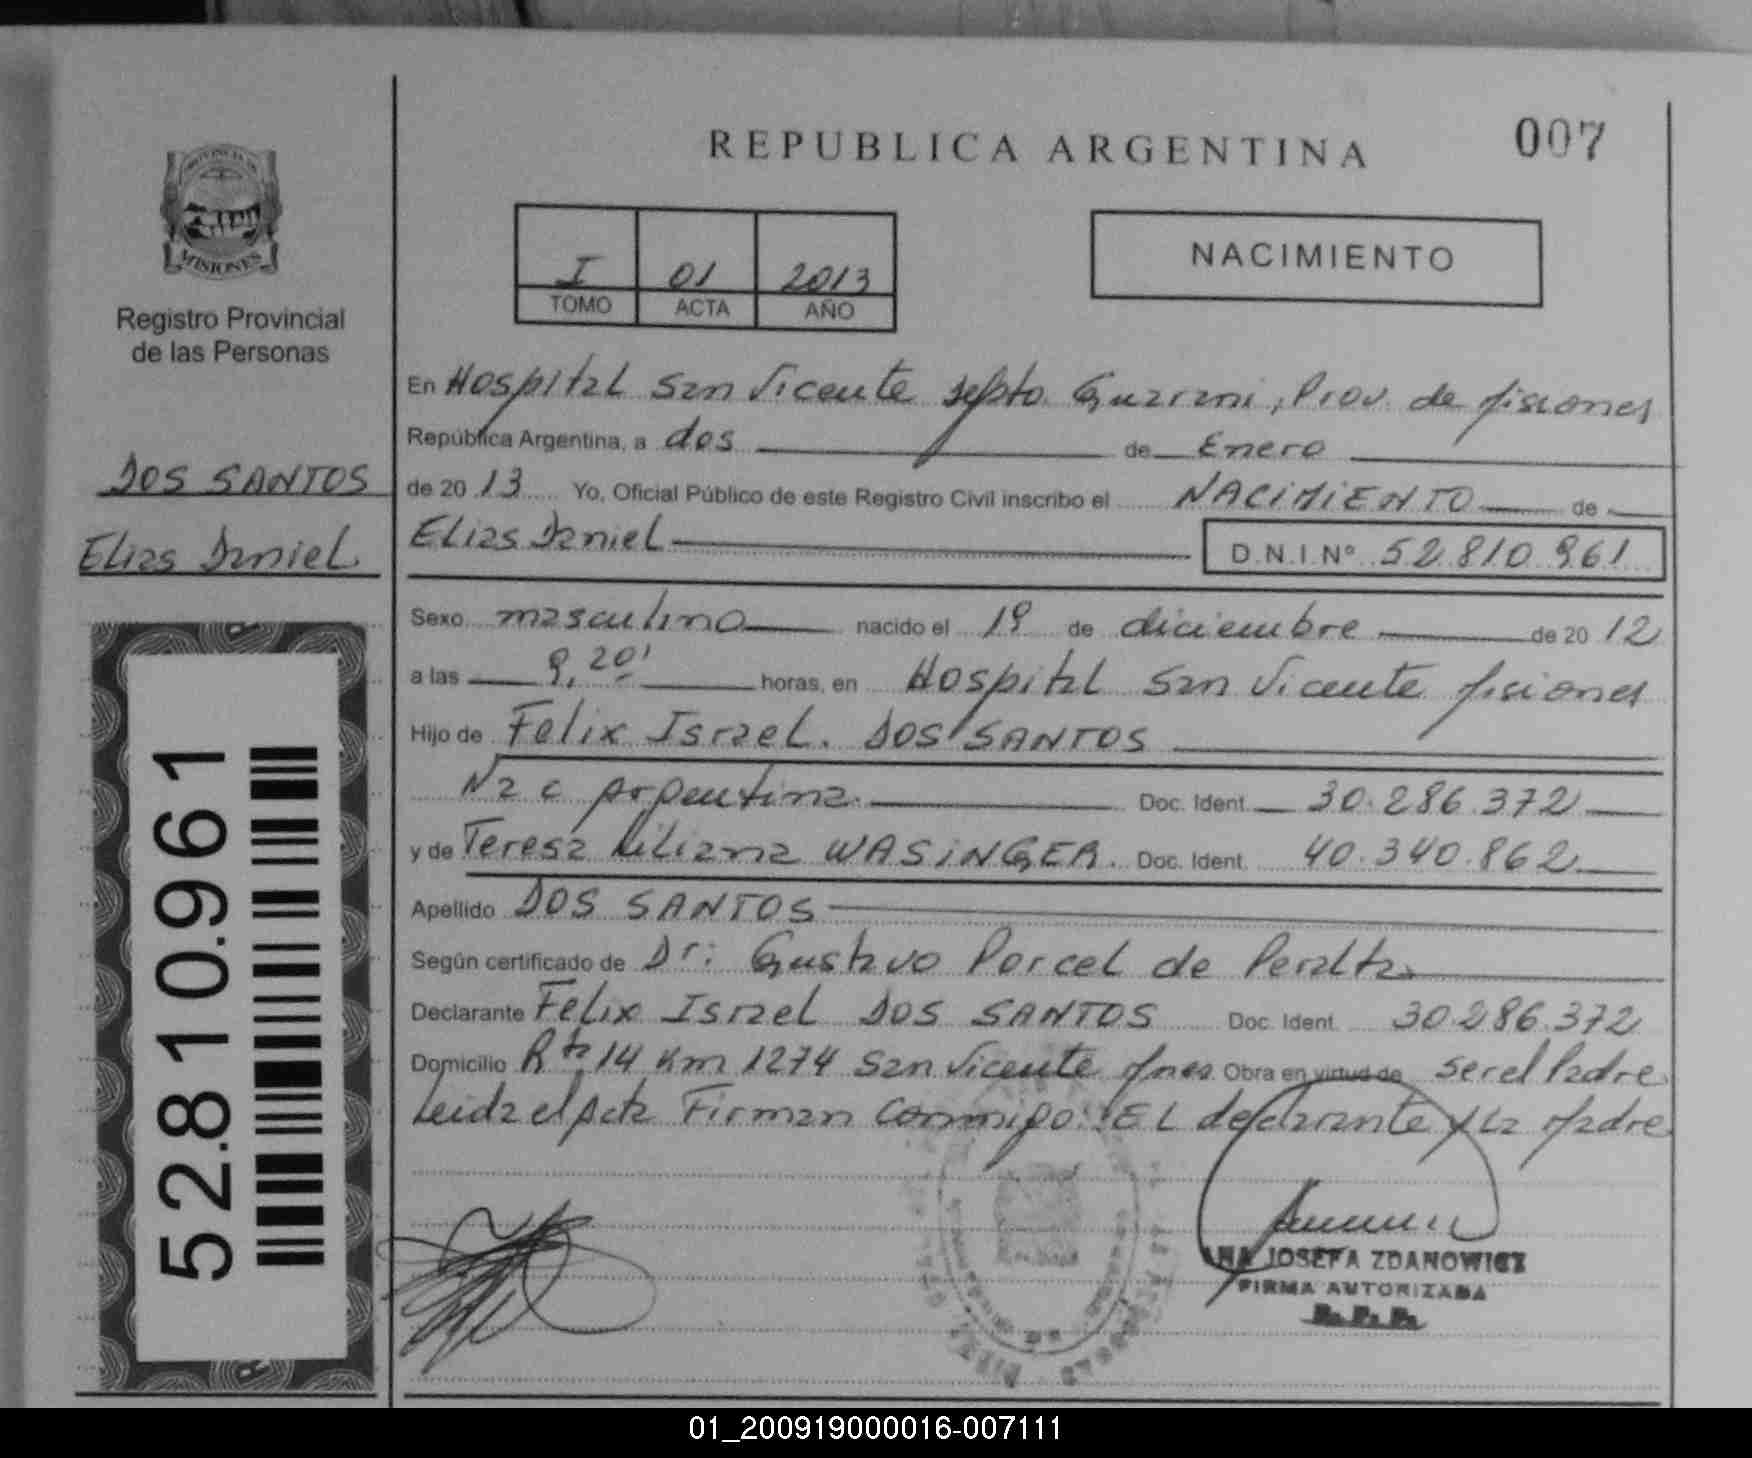 REPUBLICA ARGENTINA
007
PROVINCIA DE
MISIONES
Registro Provincial
de las Personas
I 01 2013
TOMO ACTA AÑO
NACIMIENTO
En Hospital San Vicente Depto Guarani, Prov. de Misiones
República Argentina, a dos de Enero
DOS SANTOS
de 20 13 Yo, Oficial Público de este Registro Civil inscribo el NACIMIENTO de
Elias Daniel
Elias Daniel D.N.I. Nº 52.810.961
Sexo masculino nacido el 19 de diciembre de 20 12
a las 9,20' horas, en Hospital San Vicente Misiones
Hijo de Felix Israel. DOS SANTOS
Nac Argentina Doc. Ident. 30.286.372
y de Teresa Liliana WASiNGER. Doc. Ident. 40.340.862
Apellido DOS SANTOS
Según certificado de Dr: Gustavo Porcel de Peralta
Declarante Felix Israel DOS SANTOS Doc. Ident. 30.286.372
Domicilio Rta 14 Km 1274 San Vicente Mnes Obra en virtud de ser el Padre
Leida el Acta Firman Conmigo: EL declarante y La Madre
52.810.961
ANA JOSEFA ZDANOWICZ
FIRMA AUTORIZADA
R.P.P.
01_200919000016-007111